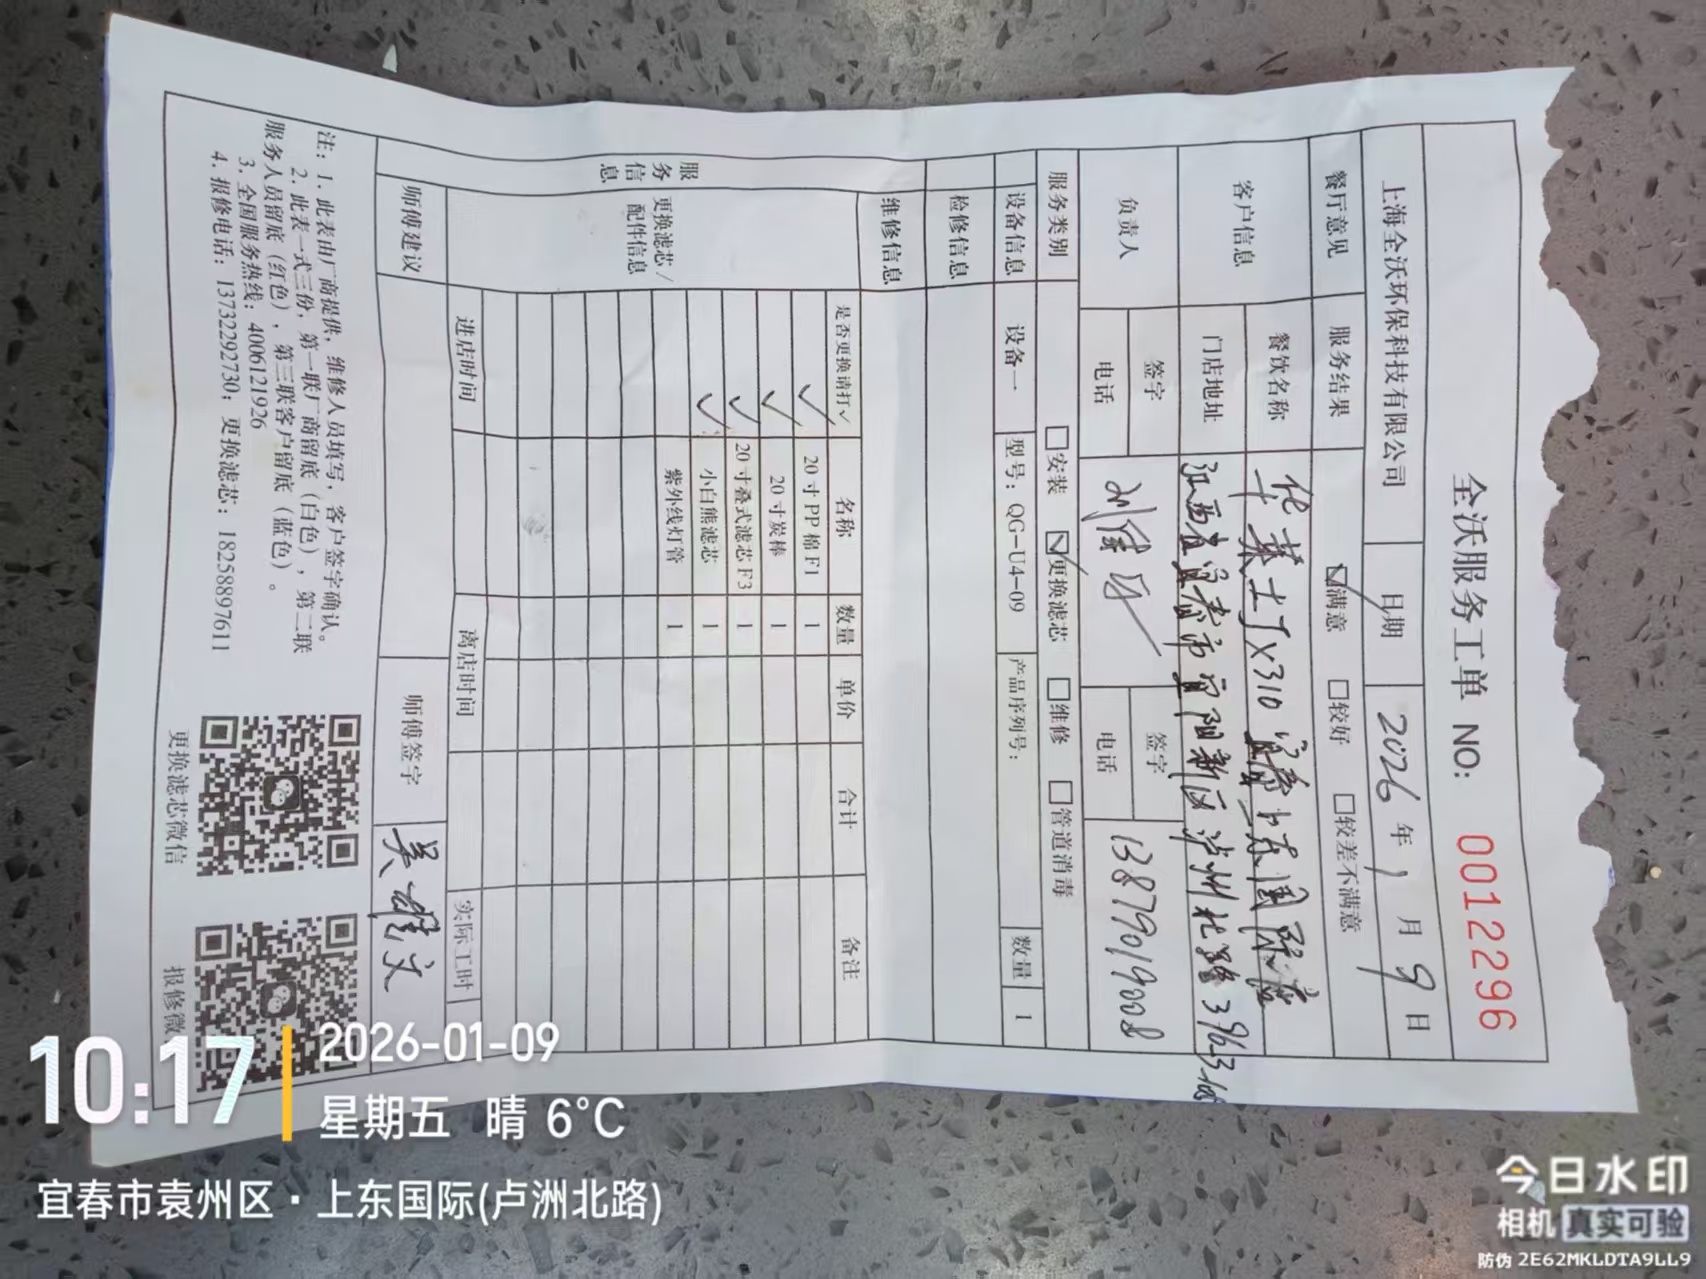 全沃服务工单 NO: 00122296
上海全沃环保科技有限公司 日期 2026 年 1 月 9 日
餐厅意见 服务结果 ☑满意 □较好 □较差不满意
客户信息 餐饮名称 华莱士JX310宜春上东国际店
门店地址 江西省宜春市宜阳新区泸州北路396号
负责人 签字 签字
电话 电话 13879019008
服务类别 □安装 ☑更换滤芯 □维修 □管道消毒
设备信息 设备一 型号：QG-U4-09 产品序列号： 数量 1
检修信息
维修信息
服务信息
更换滤芯/配件信息
是否更换请打✓ 名称 数量 单价 合计 备注
✓ 20寸PP棉F1 1
✓ 20寸炭棒 1
✓ 20寸叠式滤芯F3 1
✓ 小白熊滤芯 1
紫外线灯管 1
进店时间 离店时间 实际工时
师傅建议 师傅签字 吴雄文
注：1. 此表由厂商提供，维修人员填写，客户签字确认。
2. 此表一式三份，第一联厂商留底（白色），第二联
服务人员留底（红色），第三联客户留底（蓝色）。
3. 全国服务热线：4006121926
4. 报修电话：13732292730；更换滤芯：18258897611
更换滤芯微信 报修微
10:17
2026-01-09
星期五 晴 6°C
宜春市袁州区·上东国际(卢洲北路)
今日水印
相机 真实可验
防伪 2E62MKLDTA9LL9